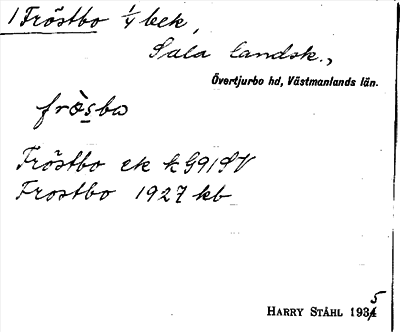 1 Fröstbo 1/4 bek,
Sala landsk.,
Övertjurbo hd, Västmanlands län.
fròsbω
Fröstbo ek ½ G91SV
Frostbo 1927 kb
HARRY STÅHL 1935